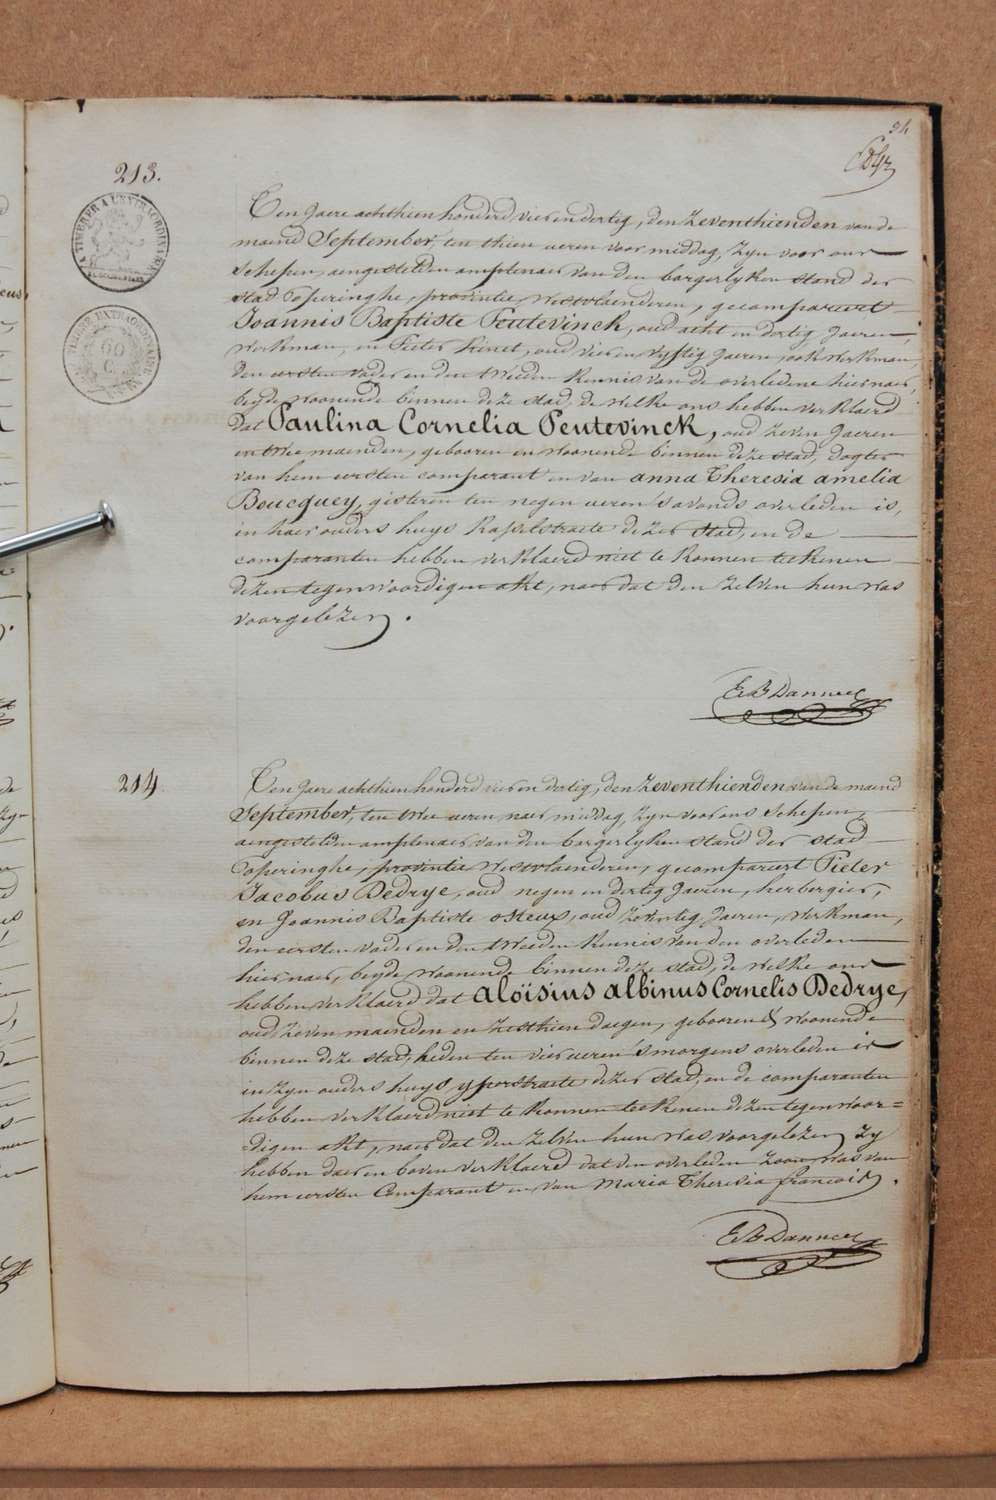 94
213.
TIMBRER A L'EXTRAORDINAIRE
TIMBRE EXTRAORDINAIRE
60
C.
Ten Jaere achthien honderd vier en dertig, den zeventhienden van de
maend September, ten thien ueren voor middag, zyn voor ons
Schepen, aengestelden amptenaer van den borgerlyken stand der
stad Poperinghe, provintie Westvlaenderen, gecompareert
Joannis Baptiste Peutevinck, oud acht en dertig Jaeren,
Werkman, en Pieter Pinet, oud vier en vyftig Jaeren, ook werkman,
den eersten vader en den tweeden kennis van de overledene hiernaer,
beyde woonende binnen deze stad, de welke ons hebben verklaerd
dat Paulina Cornelia Peutevinck, oud zeven Jaeren
en twee maenden, gebooren en woonende binnen deze stad, dogter
van hem eersten comparant en van anna Theresia amelia
Boucquey, gisteren ten negen ueren s'avonds overleden is,
in haer ouders huys Kasselstraete dezer stad, en de
comparanten hebben verklaerd niet te konnen teekenen
dezen tegenwoordigen akt, naer dat den zelven hun was
voorgelezen.
214
Ten Jaere achthien honderd vier en dertig, den zeventhienden van de maend
September, ten twee ueren naer middag, zyn voor ons Schepen,
aengestelden amptenaer van den borgerlyken stand der stad
Poperinghe, provintie Westvlaenderen, gecompareert Pieter
Jacobus Dedrye, oud negen en dertig Jaeren, herbergier,
en Joannis Baptiste osteux, oud zeventig Jaeren, Werkman,
den eersten vader en den tweeden kennis van den overleden
hiernaer, beyde woonende binnen deze stad, de welke ons
hebben verklaerd dat aloïsius albinus Cornelis Dedrye,
oud zeven maenden en zesthien daegen, gebooren & woonende
binnen deze stad, heden ten vier ueren s'morgens overleden is
in zyn ouders huys yperstraete dezer stad, en de comparanten
hebben verklaerd niet te konnen teekenen dezen tegenwoor=
digen akt, naer dat den zelven hun was voorgelezen, zy
hebben daer en boven verklaerd dat den overleden zoon was van
hem eersten Comparant en van Maria Theresia francois.